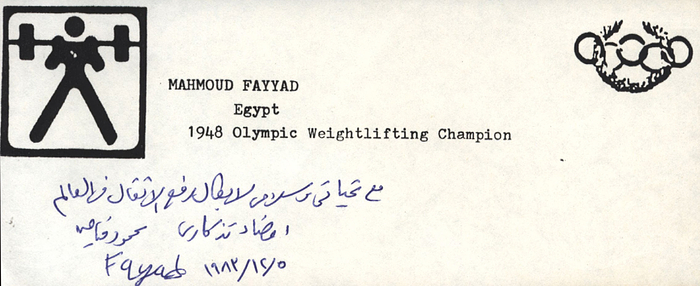 MAHMOUD FAYYAD
Egypt
1948 Olympic Weightlifting Champion
مع تحياتى وسلامى لابطال رفع الاثقال فى العالم
امضاء تذكارى محمود فياض
Fayad ١٩٨٢/١٢/٥